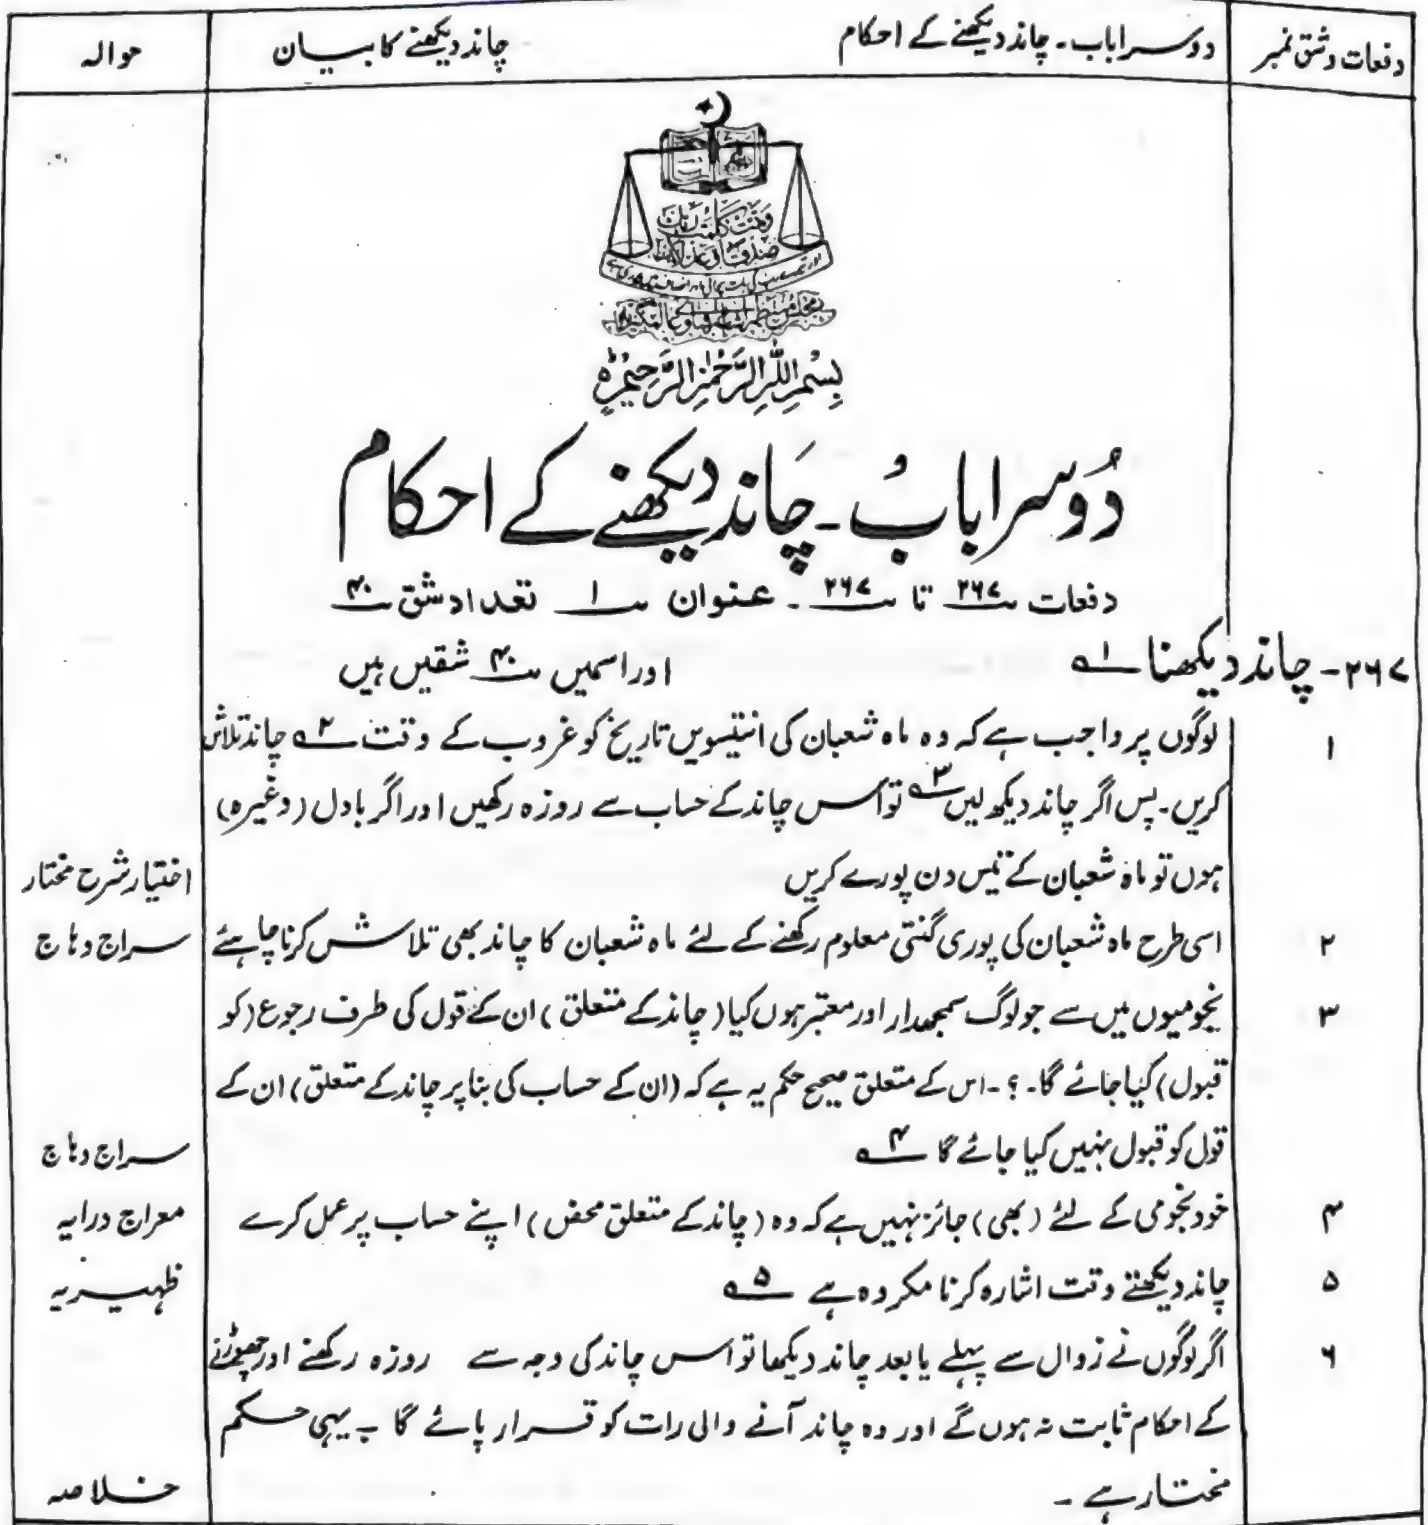 دفعات و شق نمبر دوسرا باب ۔ چاند دیکھنے کے احکام چاند دیکھنے کا بیان حوالہ
وَتَمَّتْ كَلِمَتُ رَبِّكَ
صِدْقًا وَّعَدْلًا
بِسْمِ اللهِ الرَّحْمٰنِ الرَّحِيْمِ ہ
دُوسرا بابُ ۔ چَاند دیکھنے کے احکام
دفعات ۲۶۷ تا ۲۶۷ ۔ عنوان ۱ تعداد شق ۴۰
۲۶۷ ۔ چاند دیکھنا ۱؎ اور اسمیں ۴۰ شقیں ہیں
۱ لوگوں پر واجب ہے کہ وہ ماہ شعبان کی انتیسویں تاریخ کو غروب کے وقت ۲؎ چاند تلاش
کریں ۔ پس اگر چاند دیکھ لیں ۳؎ تو اُس چاند کے حساب سے روزہ رکھیں اور اگر بادل (وغیرہ)
ہوں تو ماہ شعبان کے تیس دن پورے کریں اختیار شرح مختار
۲ اسی طرح ماہ شعبان کی پوری گنتی معلوم رکھنے کے لئے ماہ شعبان کا چاند بھی تلاش کرنا چاہئے سراج وہاج
۳ نجومیوں میں سے جو لوگ سمجھدار اور معتبر ہوں کیا (چاند کے متعلق) ان کے قول کی طرف رجوع (کو
قبول) کیا جائے گا ۔ ؟ ۔ اس کے متعلق صحیح حکم یہ ہے کہ (ان کے حساب کی بنا پر چاند کے متعلق) ان کے
قول کو قبول نہیں کیا جائے گا ۴؎ سراج وہاج
۴ خود نجومی کے لئے (بھی) جائز نہیں ہے کہ وہ (چاند کے متعلق محض) اپنے حساب پر عمل کرے معراج درایہ
۵ چاند دیکھتے وقت اشارہ کرنا مکروہ ہے ۵؎ ظہیریہ
۶ اگر لوگوں نے زوال سے پہلے یا بعد چاند دیکھا تو اُس چاند کی وجہ سے روزہ رکھنے اور چھوڑنے
کے احکام ثابت نہ ہوں گے اور وہ چاند آنے والی رات کو قرار پائے گا ۔ یہی حکم
مختار ہے ۔ خلاصہ